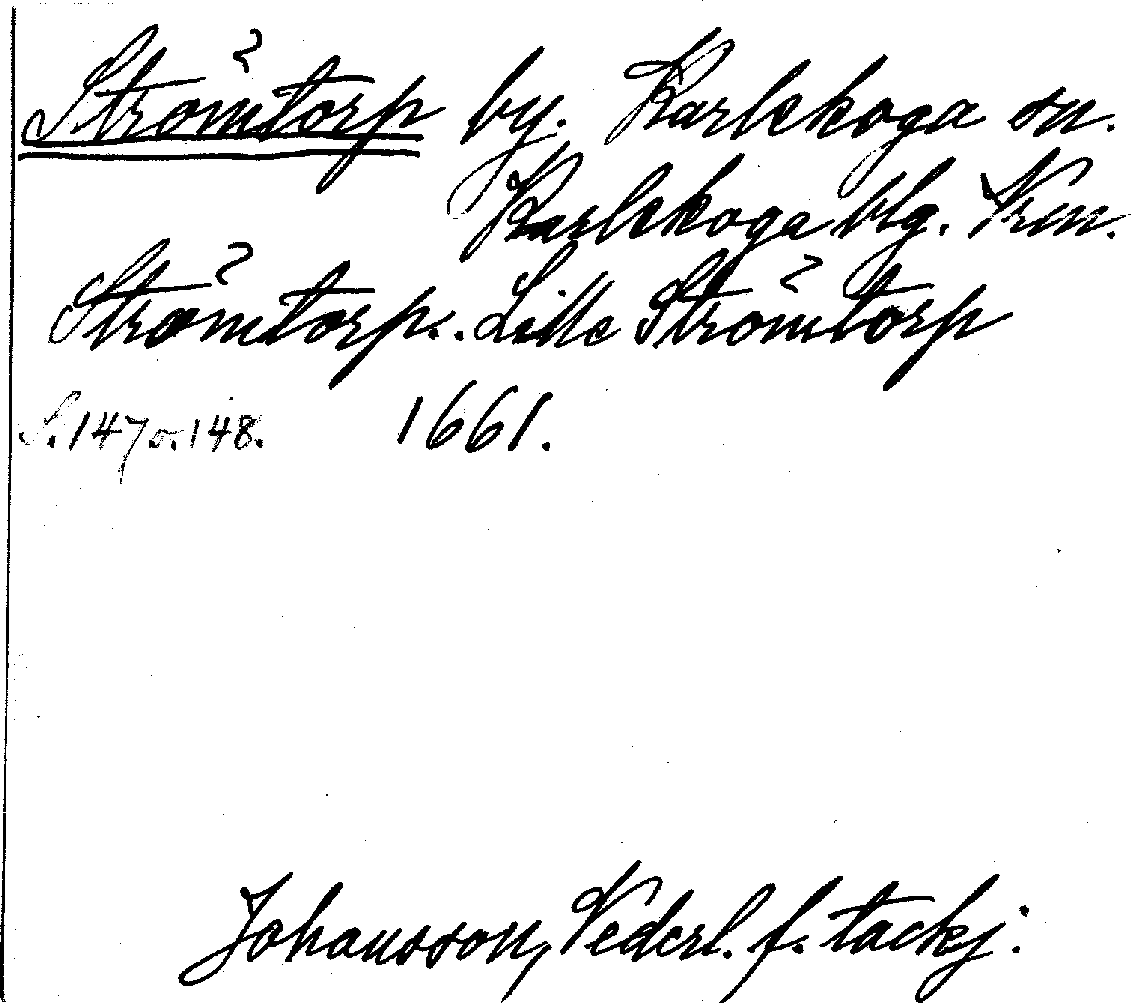 Strömtorp by. Karlskoga sn.
Karlskoga blg. Nrm.
Strömtorp.. Lille Strömtorp
S. 147 o. 148. 1661.
Johansson, Nederl. f. tackj.